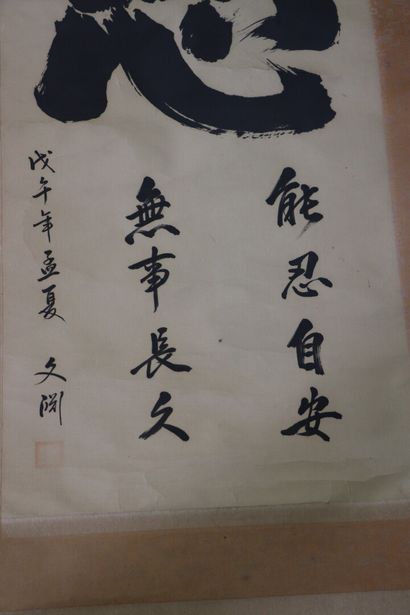 能忍自安
無事長久
戊午年孟夏 文淵